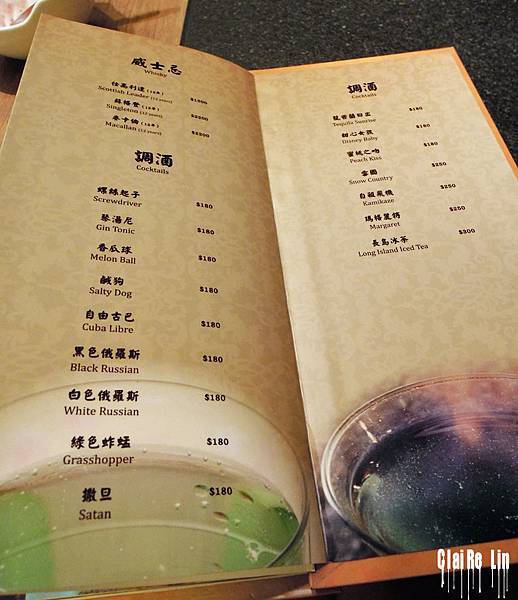 威士忌
Whisky
仕高利達(12年)
Scottish Leader (12 years) $1500
蘇格登(12年)
Singleton (12 years) $2200
麥卡倫(12年)
Macallan (12 years) $2200
調酒
Cocktails
螺絲起子
Screwdriver $180
琴湯尼
Gin Tonic $180
香瓜球
Melon Ball $180
鹹狗
Salty Dog $180
自由古巴
Cuba Libre $180
黑色俄羅斯
Black Russian $180
白色俄羅斯
White Russian $180
綠色蚱蜢
Grasshopper $180
撒旦
Satan $180
調酒
Cocktails
龍舌蘭日出
Tequila Sunrise $180
甜心女孩
Disney Baby $180
蜜桃之吻
Peach Kiss $180
雪國
Snow Country $250
自殺飛機
Kamikaze $250
瑪格麗特
Margaret $250
長島冰茶
Long Island Iced Tea $300
ClaiRe Lin